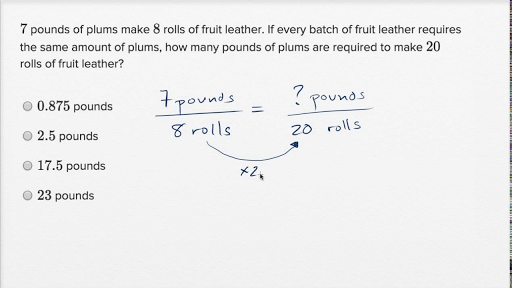 7 pounds of plums make 8 rolls of fruit leather. If every batch of fruit leather requires
the same amount of plums, how many pounds of plums are required to make 20
rolls of fruit leather?
0.875 pounds
2.5 pounds
17.5 pounds
23 pounds
7 pounds = ? pounds
8 rolls 20 rolls
×2.